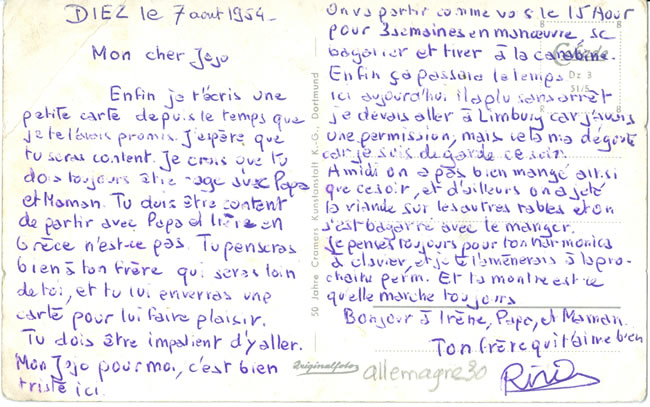 DIEZ le 7 aout 1954
Mon cher Jojo
Enfin je t'écris une
petite carte depuis le temps que
je te l'avais promis. J'espère que
tu seras content. Je crois que tu
dois toujours être sage avec Papa
et Maman. Tu dois être content
de partir avec Papa et Irène en
Grèce n'est-ce pas. Tu penseras
bien à ton frère qui sera loin
de toi, et tu lui enverras une
carte pour lui faire plaisir.
Tu dois être impatient d'y aller.
Mon Jojo pour moi, c'est bien
triste ici.
50 Jahre Cramers Kunstanstalt K.-G., Dortmund
On va partir comme le 15 Aout
pour 3 semaines en manœuvre, se
bagarrer et tirer à la carabine.
Enfin ça passera le temps
ici aujourd'hui il a plu sans arrêt
je devais aller à Limburg car j'avais
une permission, mais cela m'a dégouté
car je suis de garde ce soir.
A midi on a pas bien mangé ainsi
que ce soir, et d'ailleurs on a jeté
la viande sur les autres tables et on
s'est bagarré avec le manger.
Je pense toujours pour ton harmonica
à clavier, et je te l'amènerais à la pro-
chaine perm. Et ta montre est-ce
qu'elle marche toujours
Bonjour à Irène, Papa, et Maman.
Ton frère qui t'aime bien
Dz 3
51/5
Originalfoto
allemagne 30